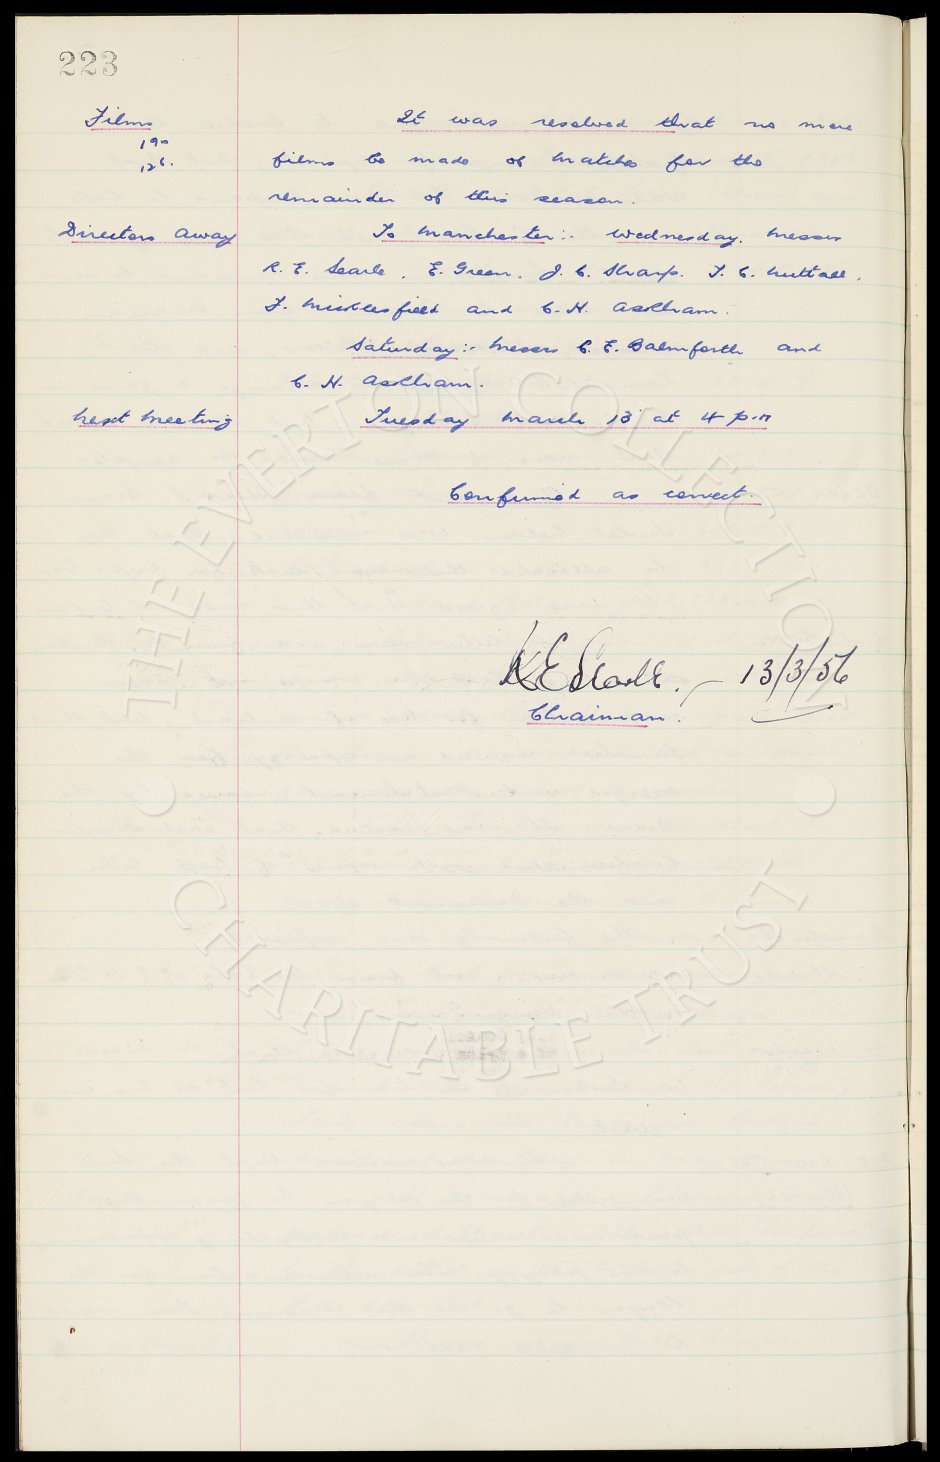 223
Films It was resolved that no more
190
126. films be made of matches for the
remainder of this season.
Directors away To Manchester:- Wednesday. Messrs
R. E. Searle, E. Green, J. C. Sharp. T. C. Nuttall,
F. Micklesfield and C. H. Askham.
Saturday:- Messrs C. E. Balmforth and
C. H. Askham.
Next Meeting Tuesday March 13 at 4 p.m
Confirmed as correct.
R E Searle. - 13/3/56
Chairman.
THE EVERTON COLLECTION
CHARITABLE TRUST